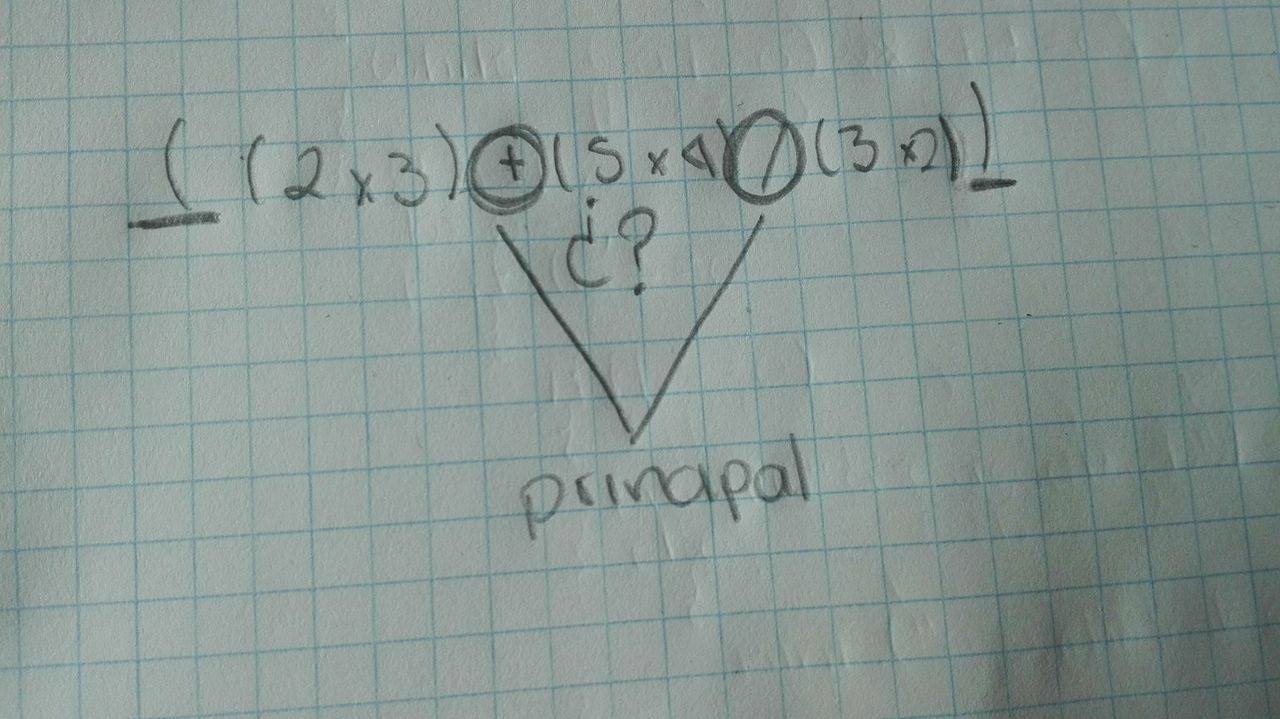 ( (2x3) + (5x4) / (3x2) )
¿?
principal